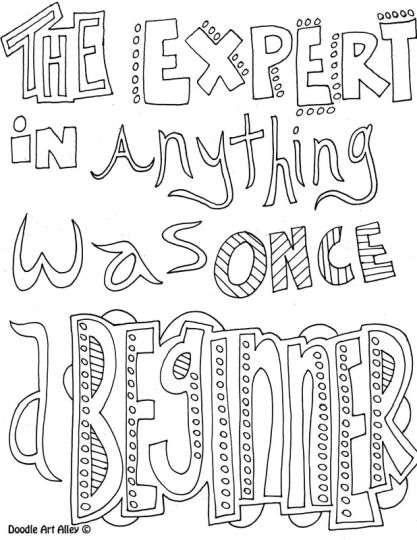 THE EXPERT
iN ANYthing
was ONCE
a BEgiNNER
Doodle Art Alley ©